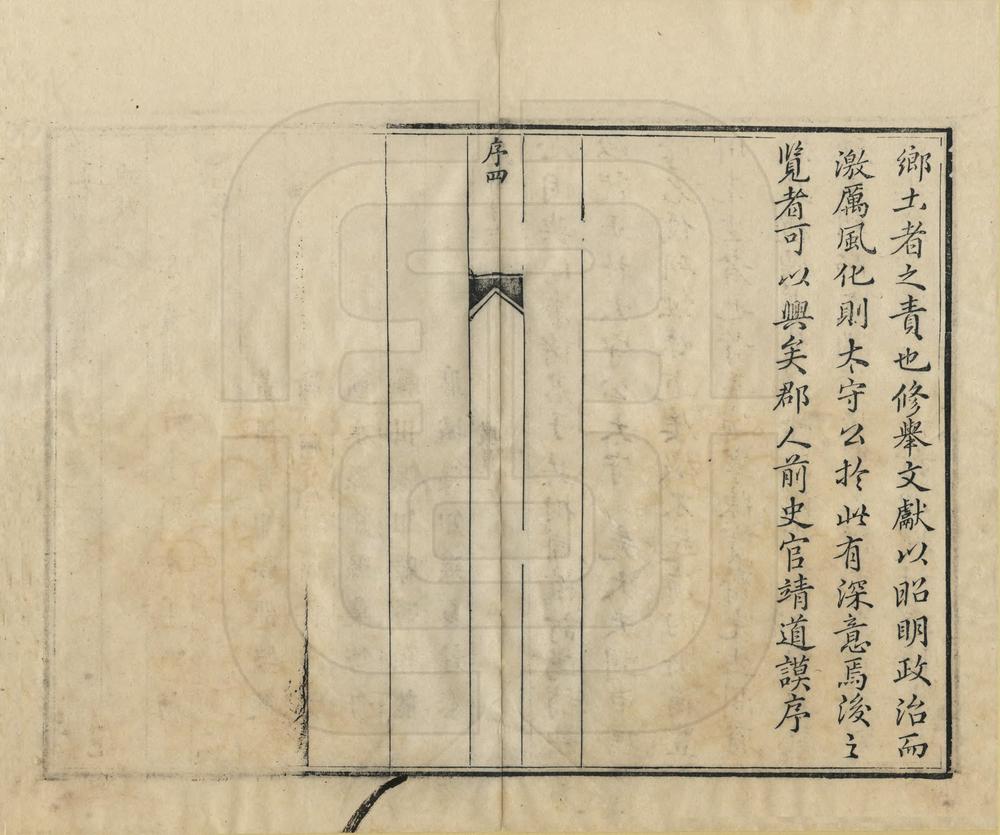 鄉土者之責也修舉文獻以昭明政治而
激厲風化則太守公於此有深意焉後之
覧者可以興矣郡人前史官靖道謨序
序四